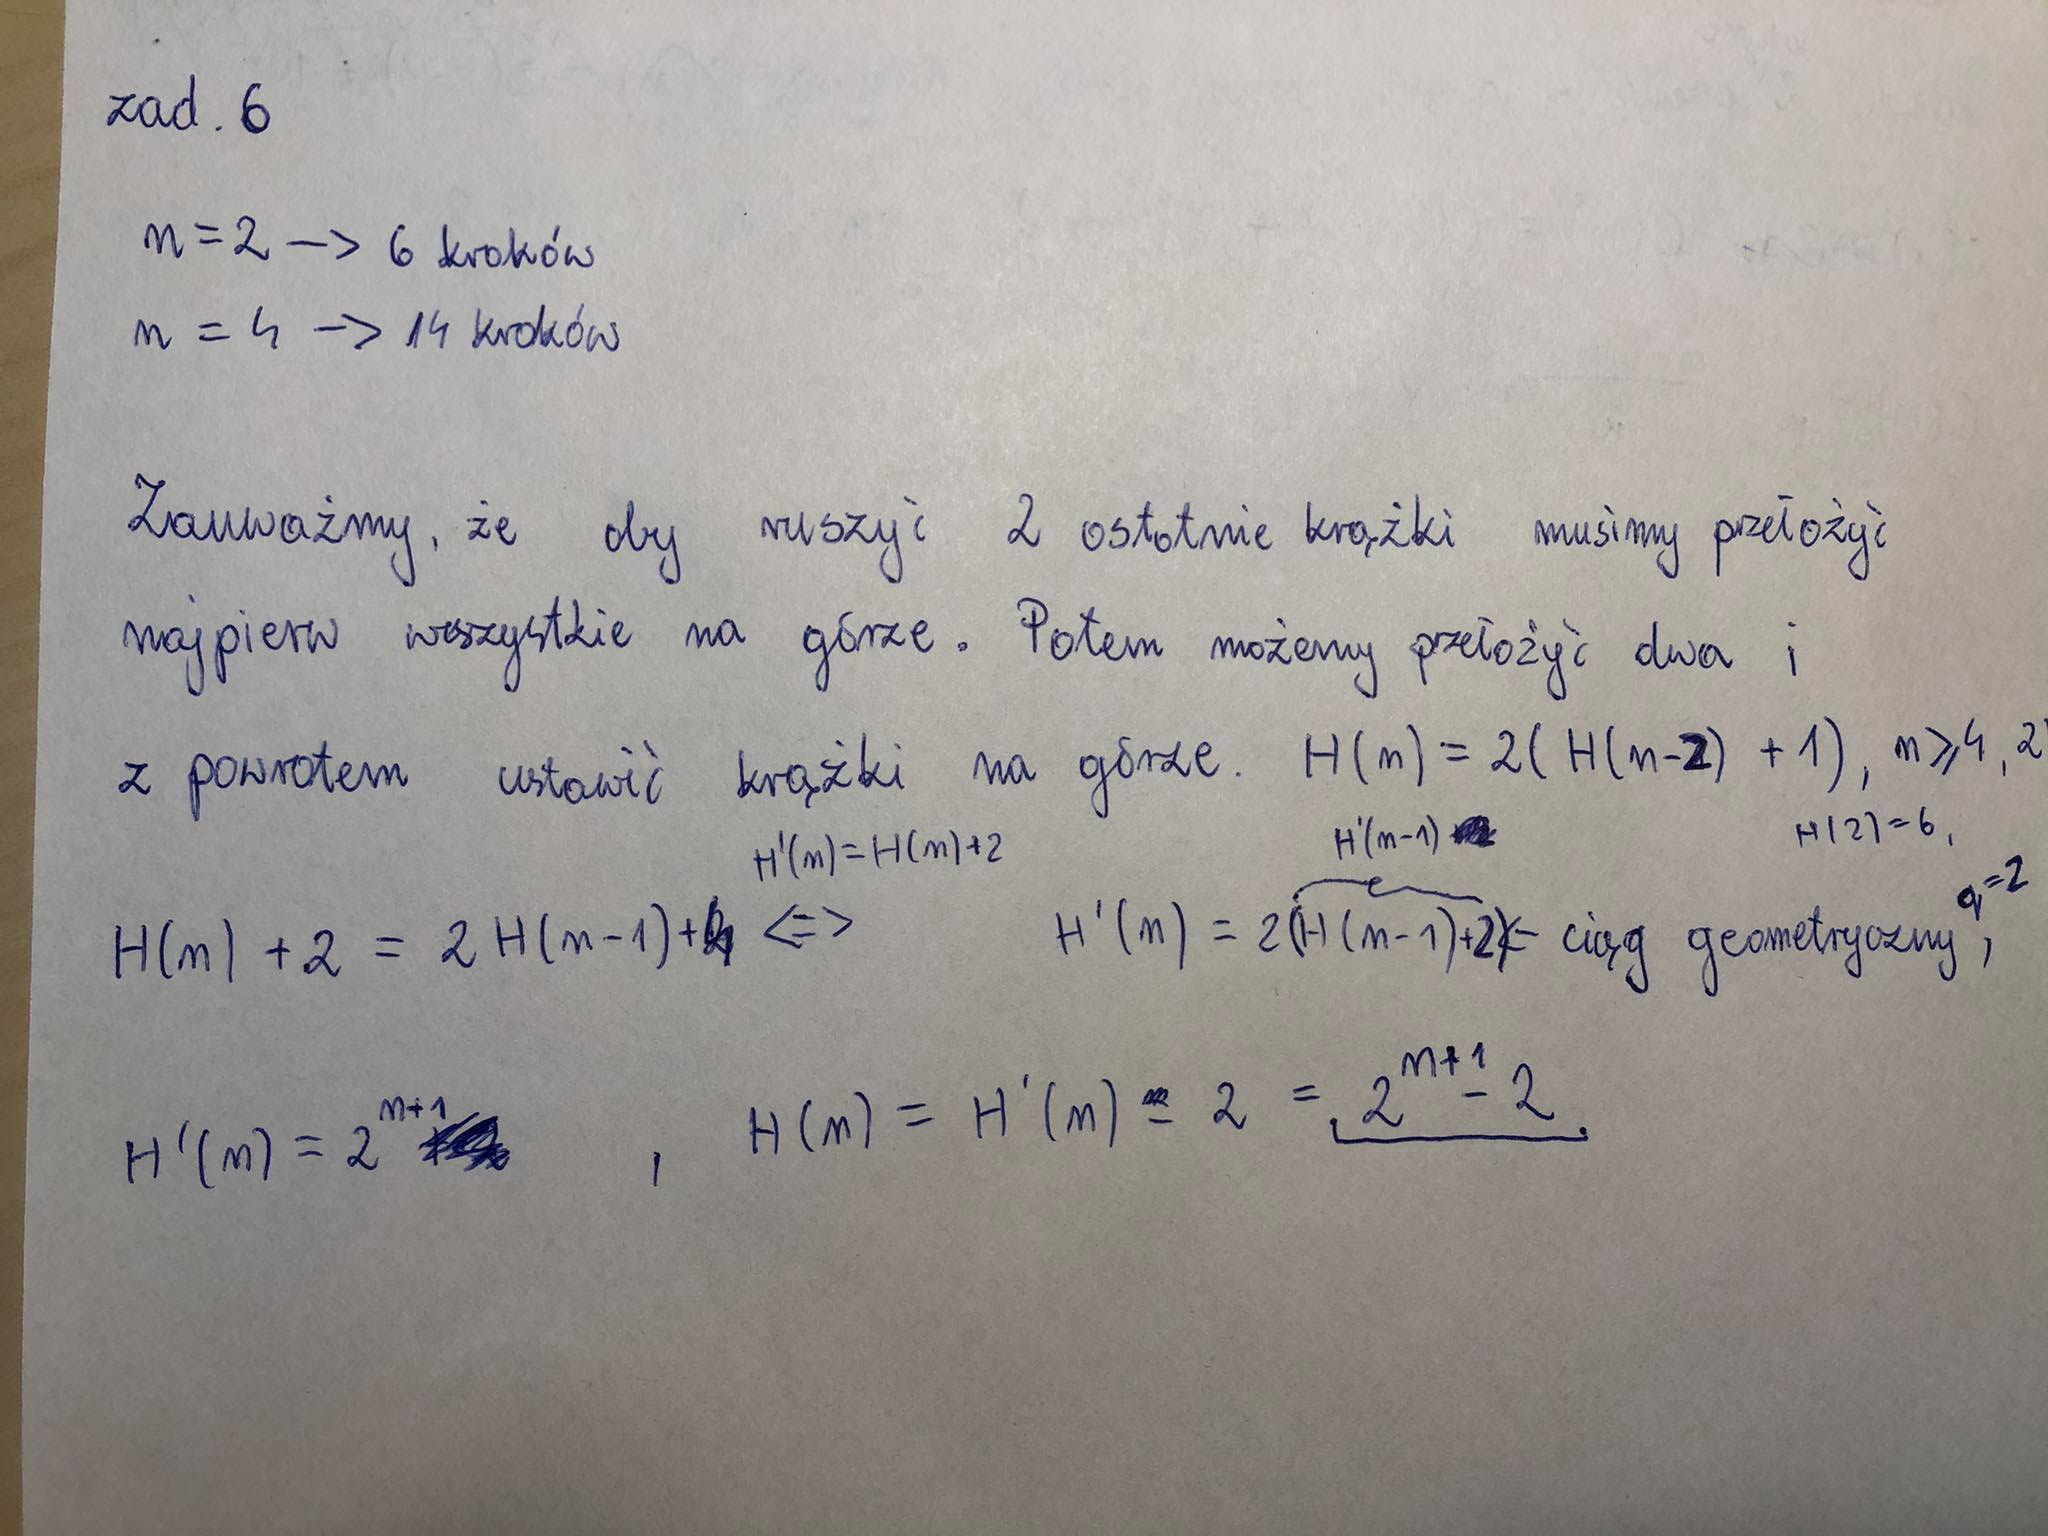 zad. 6
n = 2 –> 6 kroków
n = 4 –> 14 kroków
Zauważmy, że aby ruszyć 2 ostatnie krążki musimy przełożyć
najpierw wszystkie na górze. Potem możemy przełożyć dwa i
z powrotem ustawić krążki na górze. H(n) = 2( H(n-2) + 1), n ⩾ 4, 2
H'(n) = H(n)+2 H'(n-1) H(2) = 6,
H(n) + 2 = 2 H(n-1) + 4 <=> H'(n) = 2(H(n-1)+2) <- ciąg geometryczny, q=2
H'(n) = 2^{n+1} , H(n) = H'(n) - 2 = 2^{n+1} - 2